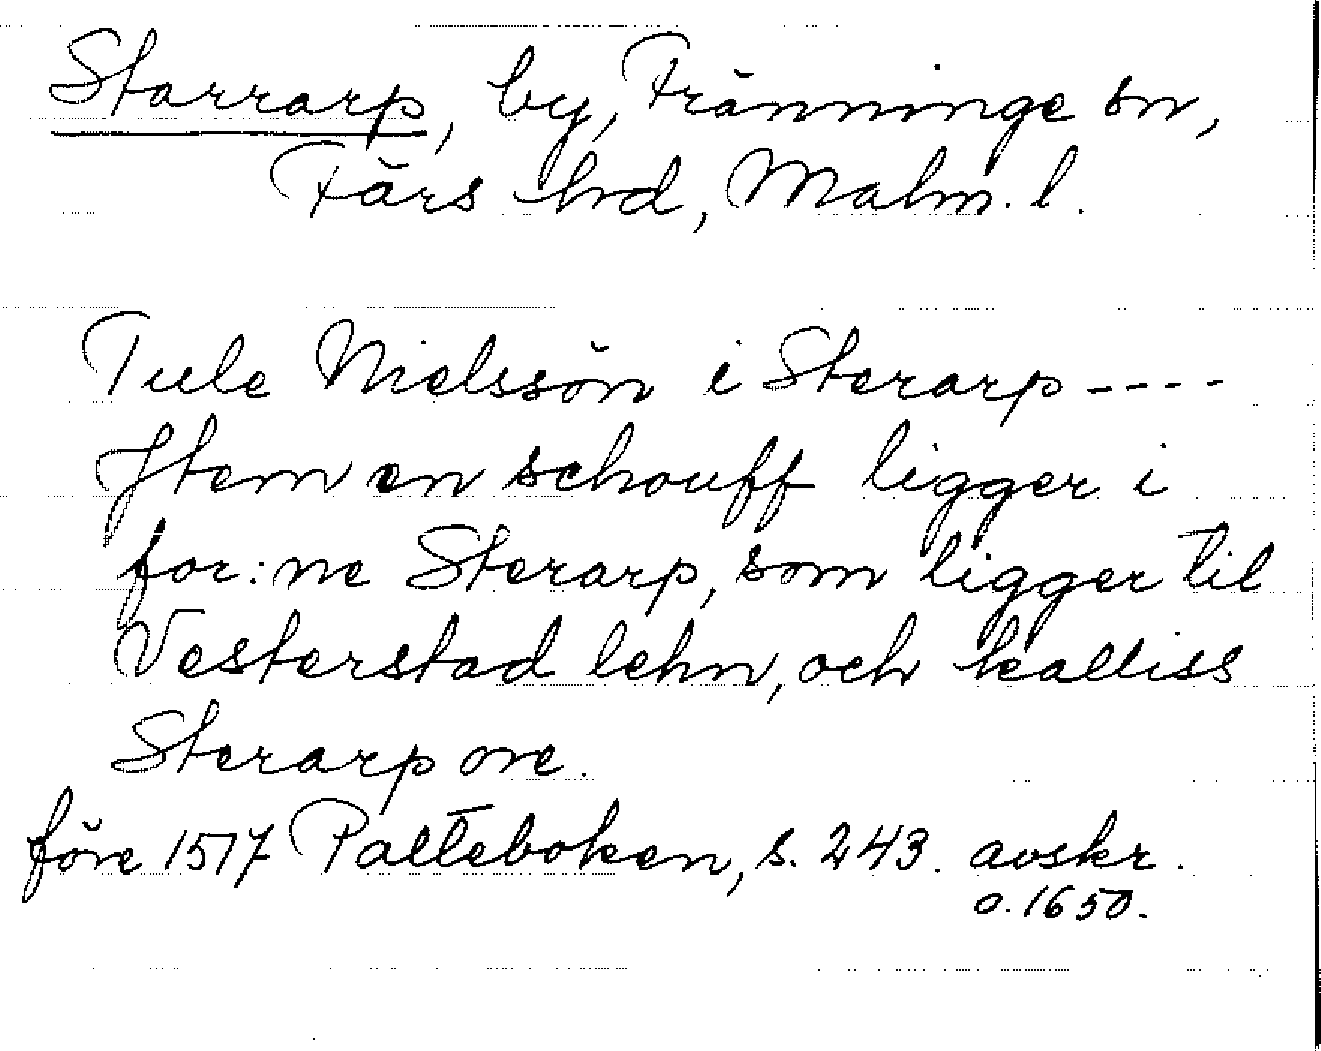 Starrarp, by, Fränninge sn,
Färs hd, Malm. l.
Tule Nielssön i Sterarp ----
Item en schouff ligger i
for:ne Sterarp, som ligger til
Vesterstad lehn, och kalliss
Sterarp ore.
före 1517 Palteboken, s. 243. avskr.
o. 1650.